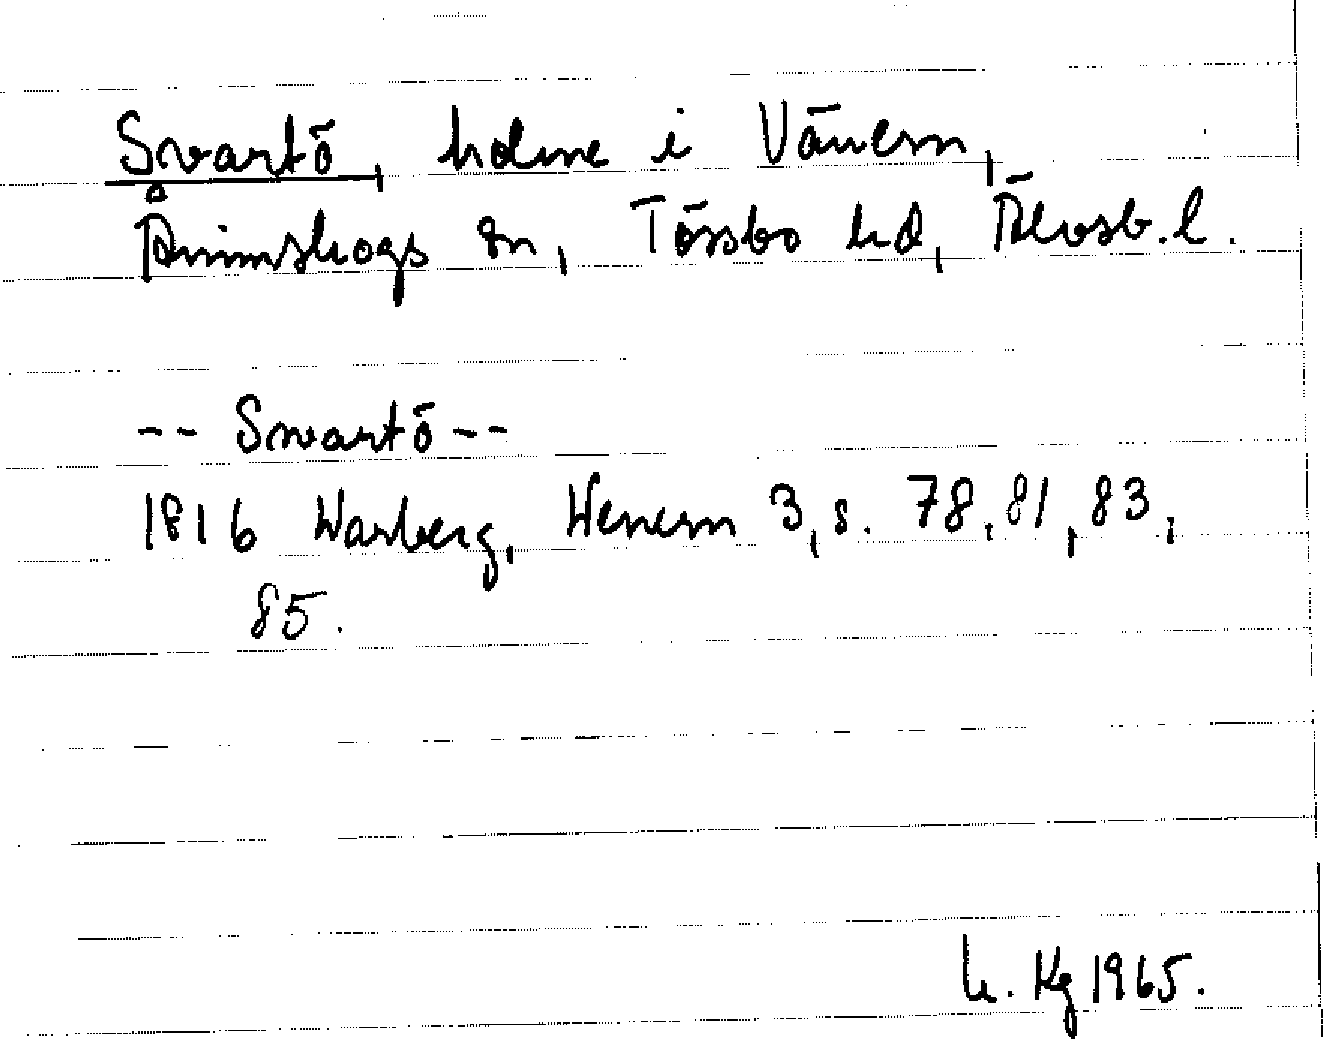 Svartö, holme i Vänern,
Ånimskogs sn, Tössbo hd, Älvsb. l.
-- Swartö --
1816 Warberg, Wenern 3, s. 78, 81, 83,
85.
Kg 1965.